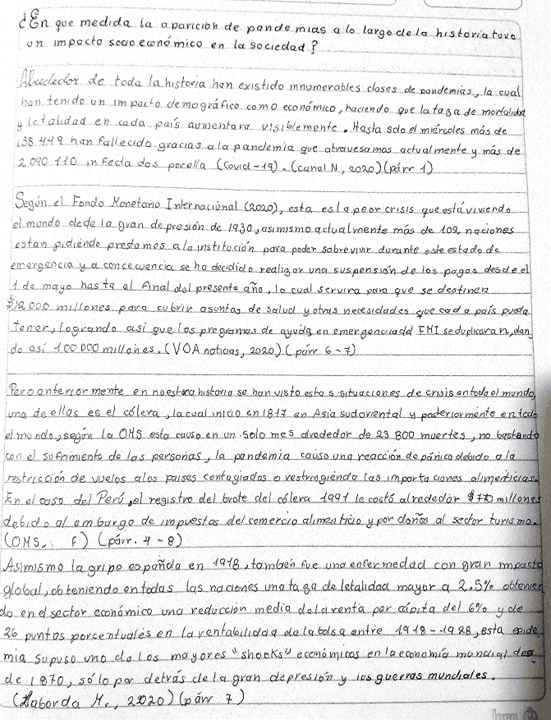 ¿En que medida la aparicion de pandemias a lo largo de la historia tuvo
un impacto socio económico en la sociedad?
Alrededor de toda la historia han existido innumerables clases de pandemias, la cual
han tenido un impacto demográfico como económico, haciendo que la taza de mortalidad
y letalidad en cada país aumentara visiblemente. Hasta solo el miércoles más de
138 449 han fallecido gracias a la pandemia que atravesamos actualmente y más de
2 090 110 infectados por ella (Covid-19). (canal N, 2020) (párr 1)
Según el Fondo Monetario Internacional (2020), esta es la peor crisis que está viviendo
el mundo desde la gran depresión de 1930, asimismo actualmente más de 102 naciones
estan pidiendo prestamos a la institución para poder sobrevivir durante este estado de
emergencia y a concecuencia se ha decidido realizar una suspensión de los pagos desde el
1 de mayo hasta el final del presente año, lo cual servira para que se destinen
$12 000 millones para cubrir asuntos de salud y otras necesidades que cada país pueda
tener, logrando así que los programas de ayuda en emergencia del FMI se duplicaran, dan
do así 100 000 millones. (VOA noticias, 2020) (párr 6-7)
Pero anteriormente en nuestra historia se han visto estas situaciones de crisis en todo el mundo,
una de ellas es el cólera, la cual inicio en 1817 en Asia sudoriental y posteriormente en todo
el mundo, según la OMS esta causo en un solo mes alrededor de 23 800 muertes, no bastando
con el sufrimiento de las personas, la pandemia causo una reacción de pánico debido a la
restricción de vuelos a los paises contagiados o restringiendo las importaciones alimenticias.
En el caso del Perú, el registro del brote del cólera 1991 le costó alrededor $770 millones
debido al embargo de impuestos del comercio alimenticio y por daños al sector turismo.
(OMS, : F) (párr. 4-8)
Asimismo la gripe española en 1918, también fue una enfermedad con gran impacto
global, obteniendo en todas las naciones una taza de letalidad mayor a 2.5% obtenien
do en el sector económico una reducción media de la renta per cápita del 6% y de
26 puntos porcentuales en la rentabilidad de la bolsa entre 1918-1928, esta epide
mia supuso uno de los mayores "shocks" económicos en la economía mundial des
de 1870, sólo por detrás de la gran depresión y las guerras mundiales.
(Laborda M., 2020) (párr 7)